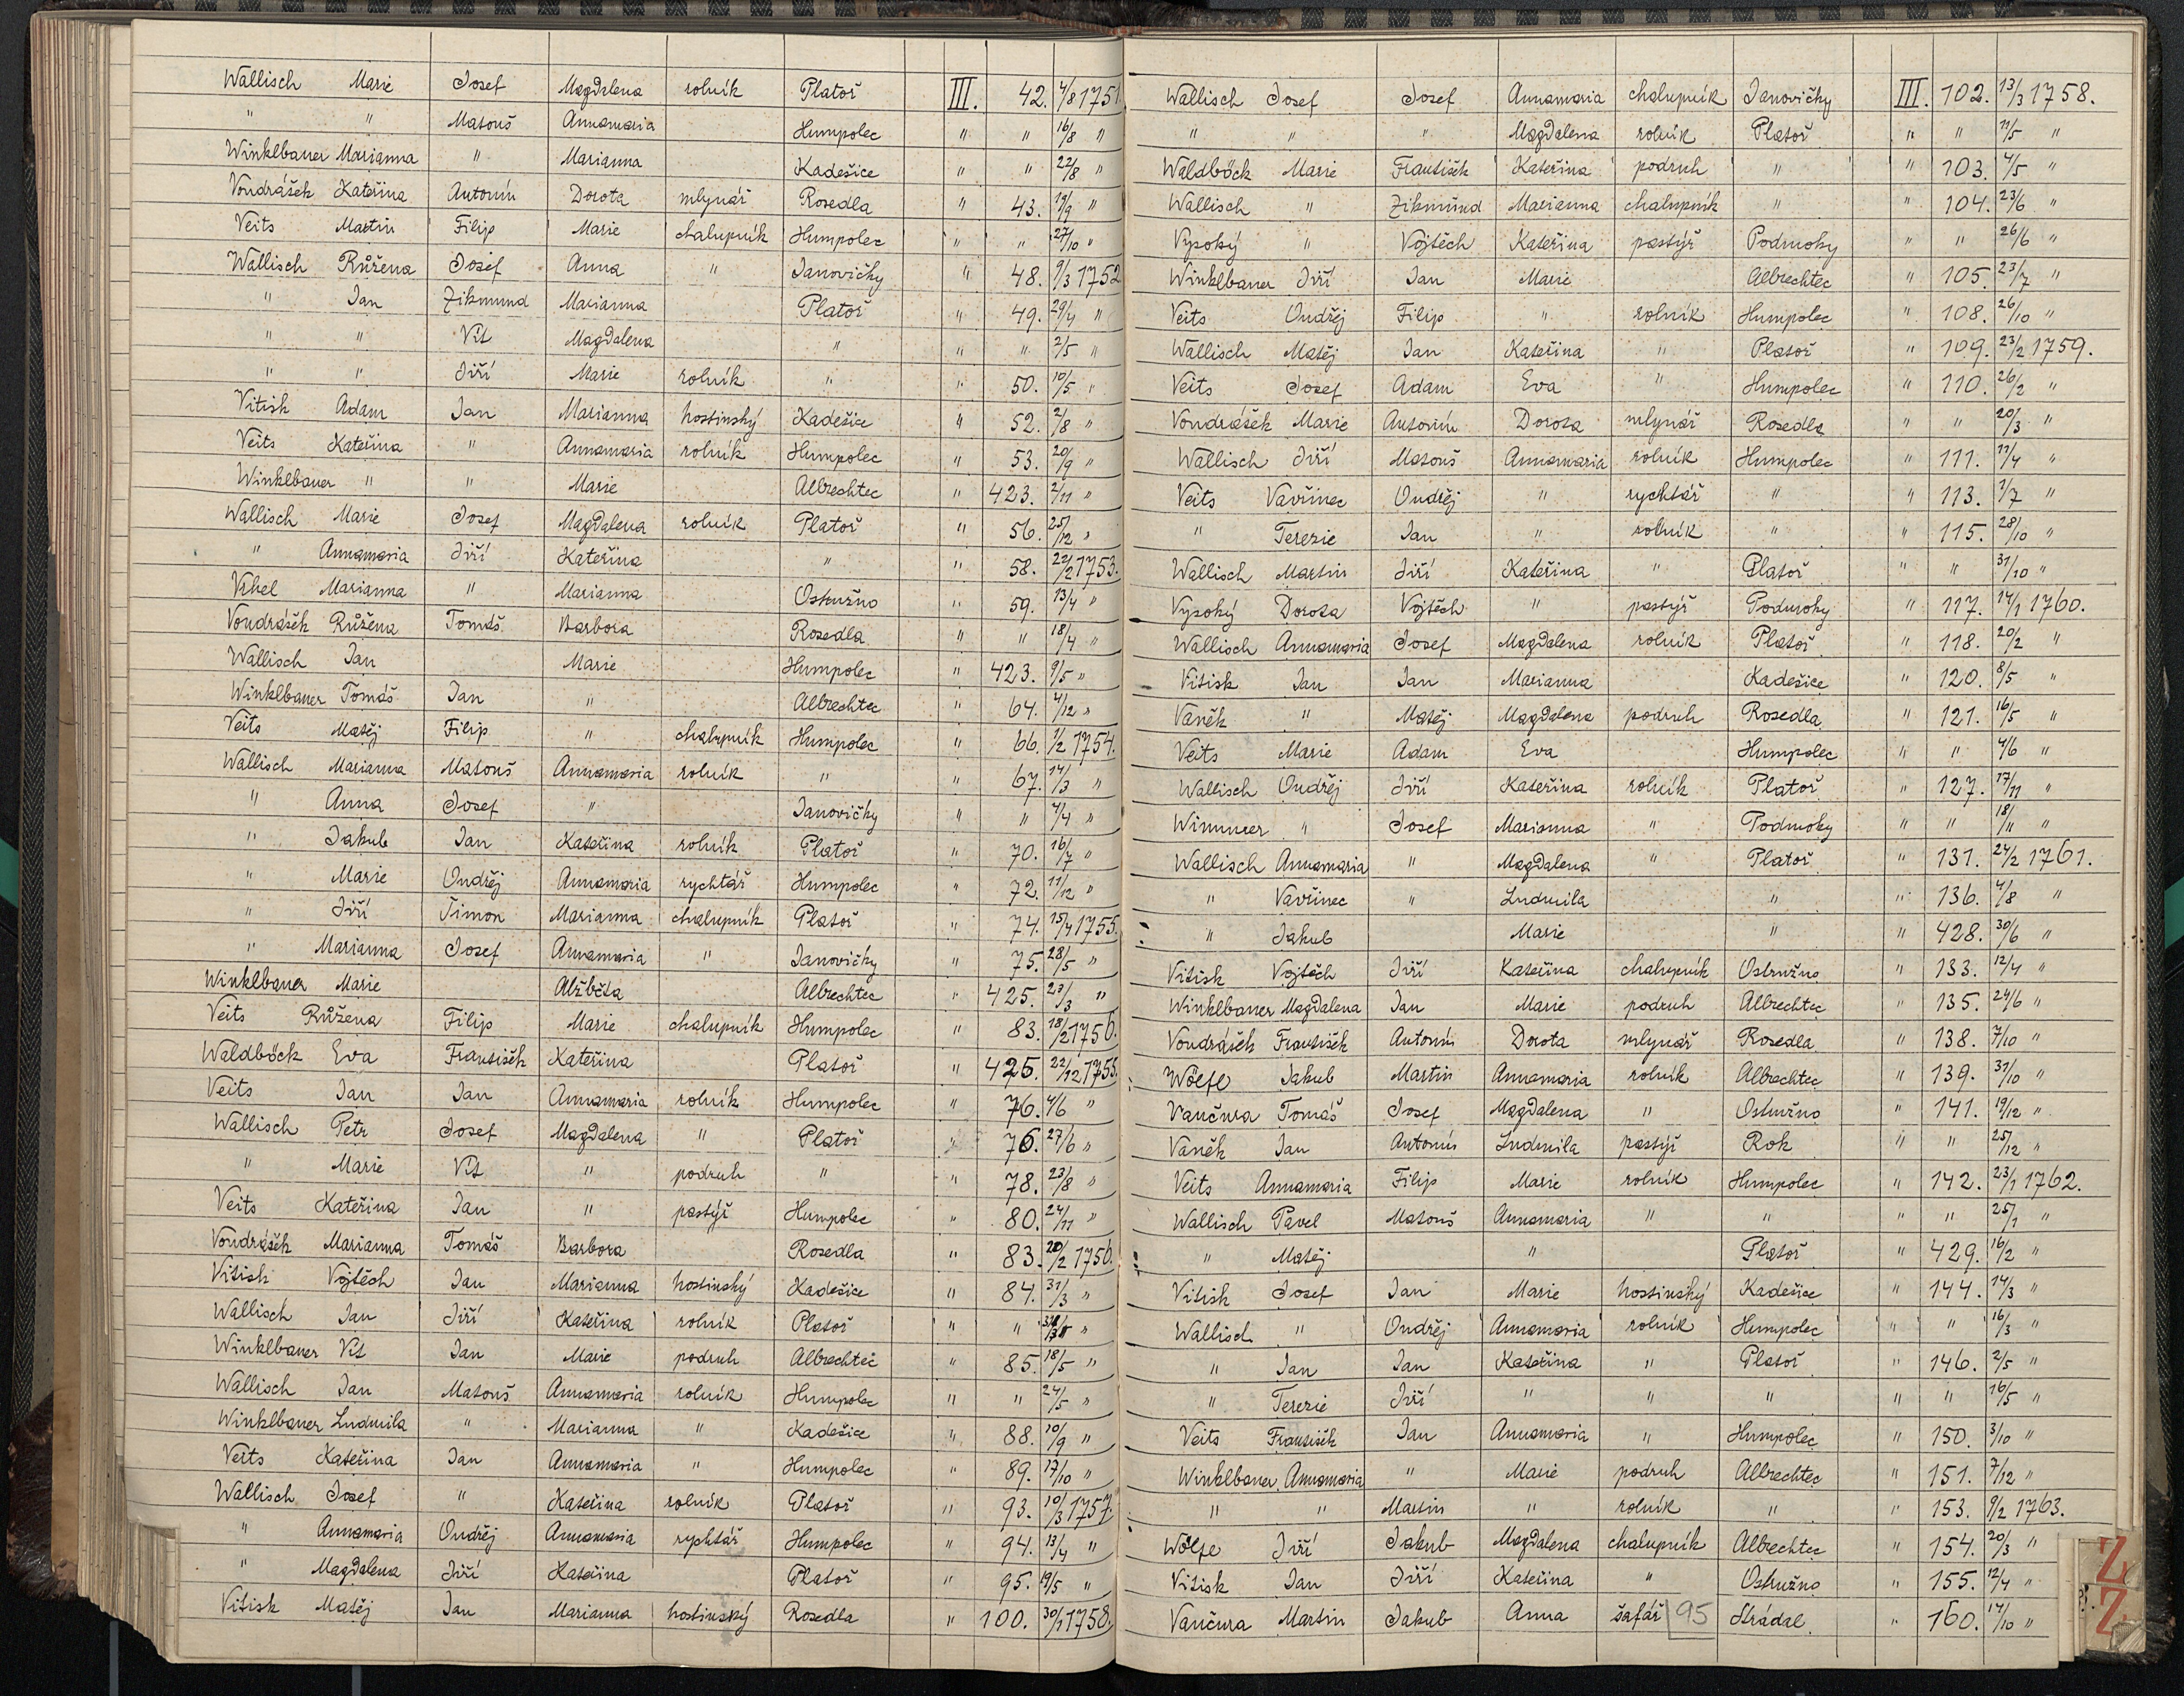 Wallisch Marie Josef Magdalena rolník Platoř III. 42. 4/8 1751.
" " Matouš Annamaria Humpolec " " 16/8 "
Winklbauer Marianna " Marianna Kadešice " " 22/8 "
Vondrášek Kateřina Antonín Dorota mlynář Rosedla " 43. 19/9 "
Veits Martin Filip Marie chalupník Humpolec " " 27/10 "
Wallisch Růžena Josef Anna " Janovičky " 48. 9/3 1752
" Jan Zikmund Marianna Platoř " 49. 29/4 "
" " Vít Magdalena " " " 2/5 "
" " Jiří Marie rolník " " 50. 10/5 "
Vitish Adam Jan Marianna hostinský Kadešice " 52. 2/8 "
Veits Kateřina " Annamaria rolník Humpolec " 53. 20/9 "
Winklbauer " " Marie Albrechtec " 423. 2/11 "
Wallisch Marie Josef Magdalena rolník Platoř " 56. 25/12 "
" Annamaria Jiří Kateřina " " 58. 22/2 1753.
Vihel Marianna " Marianna Ostružno " 59. 13/4 "
Vondrášek Růžena Tomáš Barbora Rosedla " " 18/4 "
Wallisch Jan Marie Humpolec " 423. 9/5 "
Winklbauer Tomáš Jan " Albrechtec " 64. 4/12 "
Veits Matěj Filip " chalupník Humpolec " 66. 1/2 1754.
Wallisch Marianna Matouš Annamaria rolník " " 67. 14/3 "
" Anna Josef " Janovičky " " 4/4 "
" Jakub Jan Kateřina rolník Platoř " 70. 16/7 "
" Marie Ondřej Annamaria rychtář Humpolec " 72. 11/12 "
" Jiří Timon Marianna chalupník Platoř " 74. 15/4 1755.
" Marianna Josef Annamaria " Janovičky " 75. 28/5 "
Winklbauer Marie Alžběta Albrechtec " 425. 23/3 "
Veits Růžena Filip Marie chalupník Humpolec " 83. 18/2 1756.
Waldböck Eva František Kateřina Platoř " 425. 22/12 1755.
Veits Jan Jan Annamaria rolník Humpolec " 76. 4/6 "
Wallisch Petr Josef Magdalena " Platoř " 76. 27/6 "
" Marie Vít " podruh " " 78. 23/8 "
Veits Kateřina Jan " pastýř Humpolec " 80. 24/11 "
Vondrášek Marianna Tomáš Barbora Rosedla " 83. 20/2 1756.
Vitish Vojtěch Jan Marianna hostinský Kadešice " 84. 31/3 "
Wallisch Jan Jiří Kateřina rolník Platoř " " "
Winklbauer Vít Jan Marie podruh Albrechtec " 85. 18/5 "
Wallisch Jan Matouš Annamaria rolník Humpolec " " 24/5 "
Winklbauer Ludmila " Marianna " Kadešice " 88. 10/9 "
Veits Kateřina Jan Annamaria " Humpolec " 89. 17/10 "
Wallisch Josef " Kateřina rolník Platoř " 93. 10/3 1757
" Annamaria Ondřej Annamaria rychtář Humpolec " 94. 13/4 "
" Magdalena Jiří Kateřina Platoř " 95. 19/5 "
Vitisk Matěj Jan Marianna hostinský Rosedla " 100. 30/1 1758.
Wallisch Josef Josef Annamaria chalupník Janovičky III. 102. 13/3 1758.
" " " Magdalena rolník Platoř " " 11/5 "
Waldböck Marie František Kateřina podruh " " 103. 4/5 "
Wallisch " Zikmund Marianna chalupník " " 104. 23/6 "
Vysoký " Vojtěch Kateřina pastýř Podmoky " " 26/6 "
Winklbauer Jiří Jan Marie Albrechtec " 105. 23/7 "
Veits Ondřej Filip " rolník Humpolec " 108. 26/10 "
Wallisch Matěj Jan Kateřina " Platoř " 109. 23/2 1759.
Veits Josef Adam Eva " Humpolec " 110. 26/2 "
Vondrášek Marie Antonín Dorota mlynář Rosedla " " 20/3 "
Wallisch Jiří Matouš Annamaria rolník Humpolec " 111. 11/4 "
Veits Vavřinec Ondřej " rychtář " " 113. 1/7 "
" Terezie Jan " rolník " " 115. 28/10 "
Wallisch Martin Jiří Kateřina " Platoř " " 31/10 "
Vysoký Dorota Vojtěch " pastýř Podmoky " 117. 14/1 1760.
Wallisch Annamaria Josef Magdalena rolník Platoř " 118. 20/2 "
Vitisk Jan Jan Marianna Kadešice " 120. 8/5 "
Vaněk " Matěj Magdalena podruh Rosedla " 121. 16/5 "
Veits Marie Adam Eva Humpolec " " 4/6 "
Wallisch Ondřej Jiří Kateřina rolník Platoř " 127. 17/11 "
Wimmer " Josef Marianna " Podmoky " " 18/11 "
Wallisch Annamaria " Magdalena " Platoř " 131. 24/2 1761.
" Vavřinec " Ludmila " " 136. 4/8 "
" Jakub Marie " " 428. 30/6 "
Vitisk Vojtěch Jiří Kateřina chalupník Ostružno " 133. 12/4 "
Winklbauer Magdalena Jan Marie podruh Albrechtec " 135. 24/6 "
Vondrášek František Antonín Dorota mlynář Rosedla " 138. 7/10 "
Wölfl Jakub Martin Annamaria rolník Albrechtec " 139. 31/10 "
Vančura Tomáš Josef Magdalena " Ostružno " 141. 19/12 "
Vaněk Jan Antonín Ludmila pastýř Rok " " 25/12 "
Veits Annamaria Filip Marie rolník Humpolec " 142. 23/1 1762.
Wallisch Pavel Matouš Annamaria " " " " 25/1 "
" Matěj " Platoř " 429. 16/2 "
Vitisk Josef Jan Marie hostinský Kadešice " 144. 14/3 "
Wallisch " Ondřej Annamaria rolník Humpolec " " 16/3 "
" Jan Jan Kateřina " Platoř " 146. 2/5 "
" Terezie Jiří " " " " " 16/5 "
Veits František Jan Annamaria " Humpolec " 150. 3/10 "
Winklbauer Annamaria " Marie podruh Albrechtec " 151. 7/12 "
" " Martin " rolník " " 153. 9/2 1763.
Wölfe Jiří Jakub Magdalena chalupník Albrechtec " 154. 20/3 "
Vitisk Jan Jiří Kateřina " Ostružno " 155. 12/4 "
Vančura Martin Jakub Anna šafář 95 Strádal " 160. 14/10 "
Z
Z